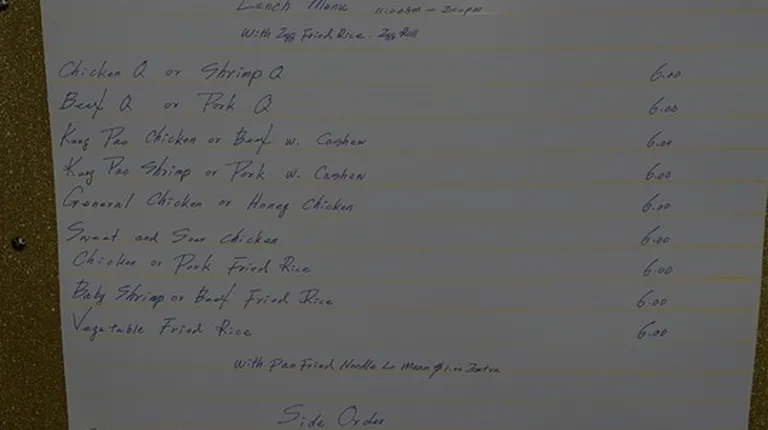 Lunch Menu 11:00am - 2:00pm
With Egg Fried Rice. Egg Roll
Chicken Q or Shrimp Q 6.00
Beef Q or Pork Q 6.00
Kung Pao Chicken or Beef w. Cashew 6.00
Kung Pao Shrimp or Pork w. Cashew 6.00
General Chicken or Honey Chicken 6.00
Sweet and Sour chicken 6.00
Chicken or Pork Fried Rice 6.00
Baby Shrimp or Beef Fried Rice 6.00
Vegetable Fried Rice 6.00
With Pan Fried Noodle Lo Mean $1.00 Extra
Side Order